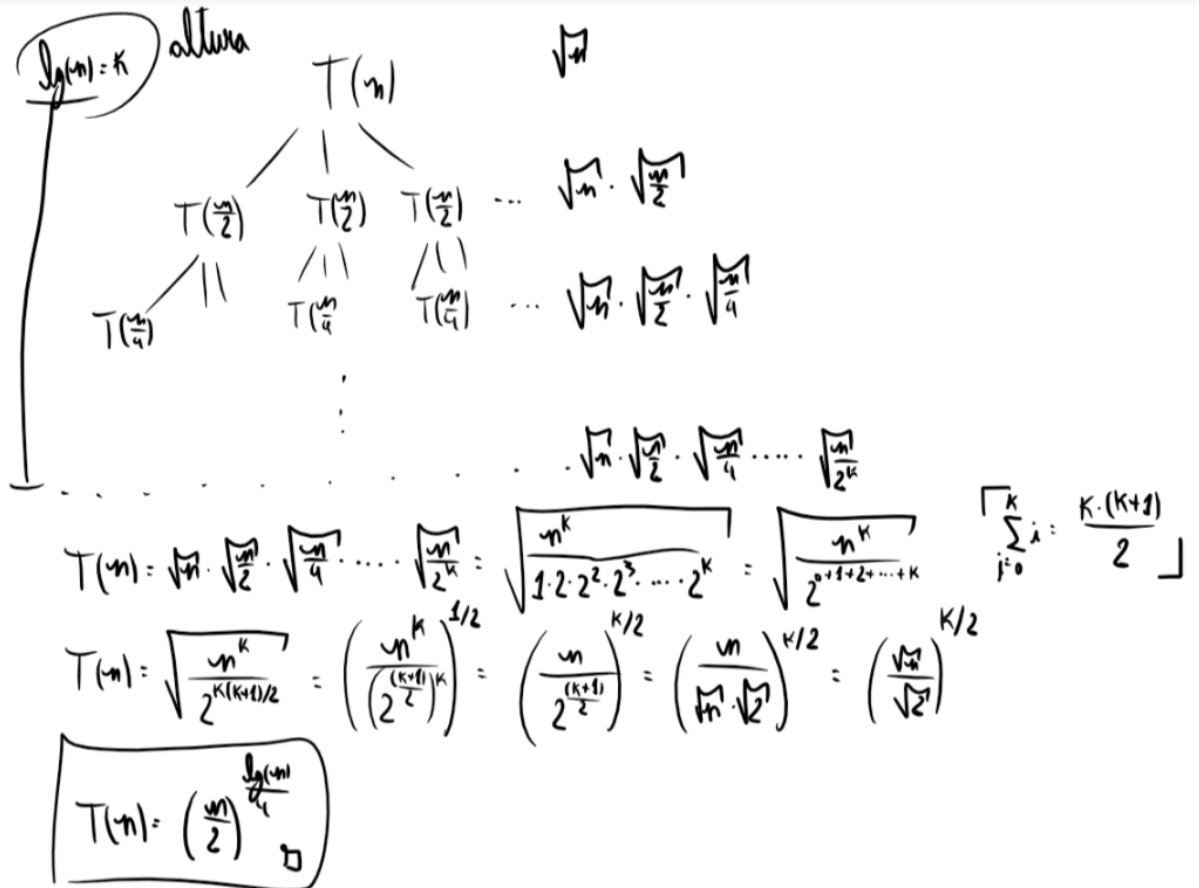 lg(n) = k altura
T(n) √n
T(n/2) T(n/2) T(n/2) ... √n · √(n/2)
T(n/4) T(n/4 T(n/4) ... √n · √(n/2) · √(n/4)
√n · √(n/2) · √(n/4) ..... √(n/2^k)
T(n) = √n · √(n/2) · √(n/4) ..... √(n/2^k) = √(n^k / (1·2·2^2·2^3·....·2^k)) = √(n^k / 2^(0+1+2+...+k)) ⌈ ∑_{i=0}^{k} i = k·(k+1)/2 ⌋
T(n) = √(n^k / 2^(k(k+1)/2)) = (n^k / (2^((k+1)/2))^k)^(1/2) = (n / 2^((k+1)/2))^(k/2) = (n / (√n · √2))^(k/2) = (√n / √2)^(k/2)
T(n) = (n/2)^(lg(n)/4) □